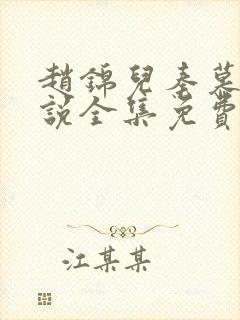 趙錦兒秦慕
說全集免費
江某某